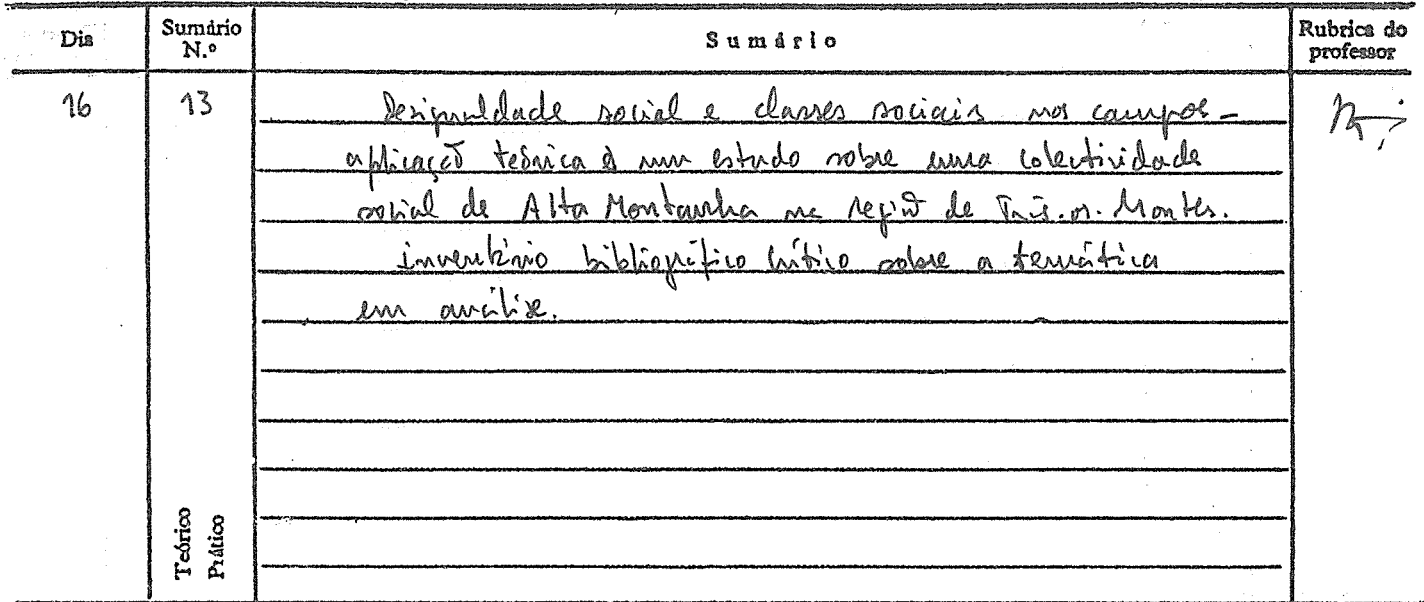 Dia Sumário N.º Sumário Rubrica do professor
16 13 Desigualdade social e classes sociais nos campos -
aplicação teórica a um estudo sobre uma colectividade
social de Alta Montanha na região de Trás-os-Montes.
inventário bibliográfico crítico sobre a temática
em análise.
Teórico
Prático